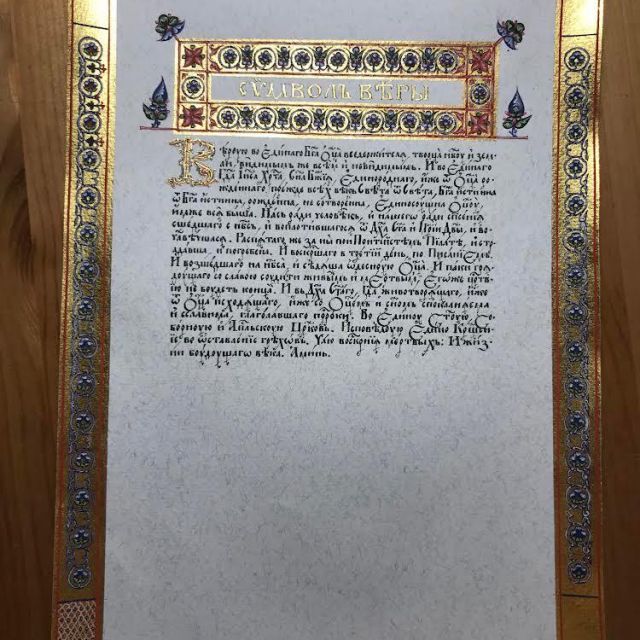 СУМВОЛЪ ВѢРЫ
Вѣрую во Единаго Бг҃а Оц҃а вседержителя, творца нб҃оу и зем-
ли, видимымъ же всѣм и невидимымъ. И во Единаго
Гд҃а Іи҃са Хр҃та Сн҃а Бж҃ия Единороднаго, иже ѿ Оц҃а ро-
жденнаго прежде всѣхъ вѣкъ. Свѣта ѿ Свѣта, Бг҃а истинна
ѿ Бг҃а истинна, рожденна, не сотворенна, Единосоущна Оц҃оу,
имже вся быша. Насъ ради человѣкъ, и нашего ради спасения
сшедшаго с нб҃съ, и воплотившагося ѿ Дх҃а Ст҃а и Мр҃ии Дв҃ы, и во-
чл҃вѣчшася. Распятаго же за ны при Понтийстѣмъ Пилатѣ, и стра-
давша, и погребенна. И воскршаго в третий день, по Писаниемъ.
И возшедшаго на нб҃са, и сѣдяща ѡдесную Оц҃а. И паки гря-
доущаго со славою соудити живымъ и мертвымъ, Егоже цр҃тви-
ю не боудетъ конца. И въ Дх҃а Ст҃аго, Гд҃а животворящаго, иже
ѿ Оц҃а исходящаго, иже со Оц҃емъ и Сн҃омъ споклоняема
и сславима, глаголавшаго пророки. Во Едину Ст҃ую, Со-
борную и Ап҃льскую Цр҃ковь. Исповѣдую Едино Крщ҃ени-
е, во ѡставление грѣховъ. Чаю воскр҃ния мертвыхъ: И жиз-
ни боудущаго вѣка. Аминь.